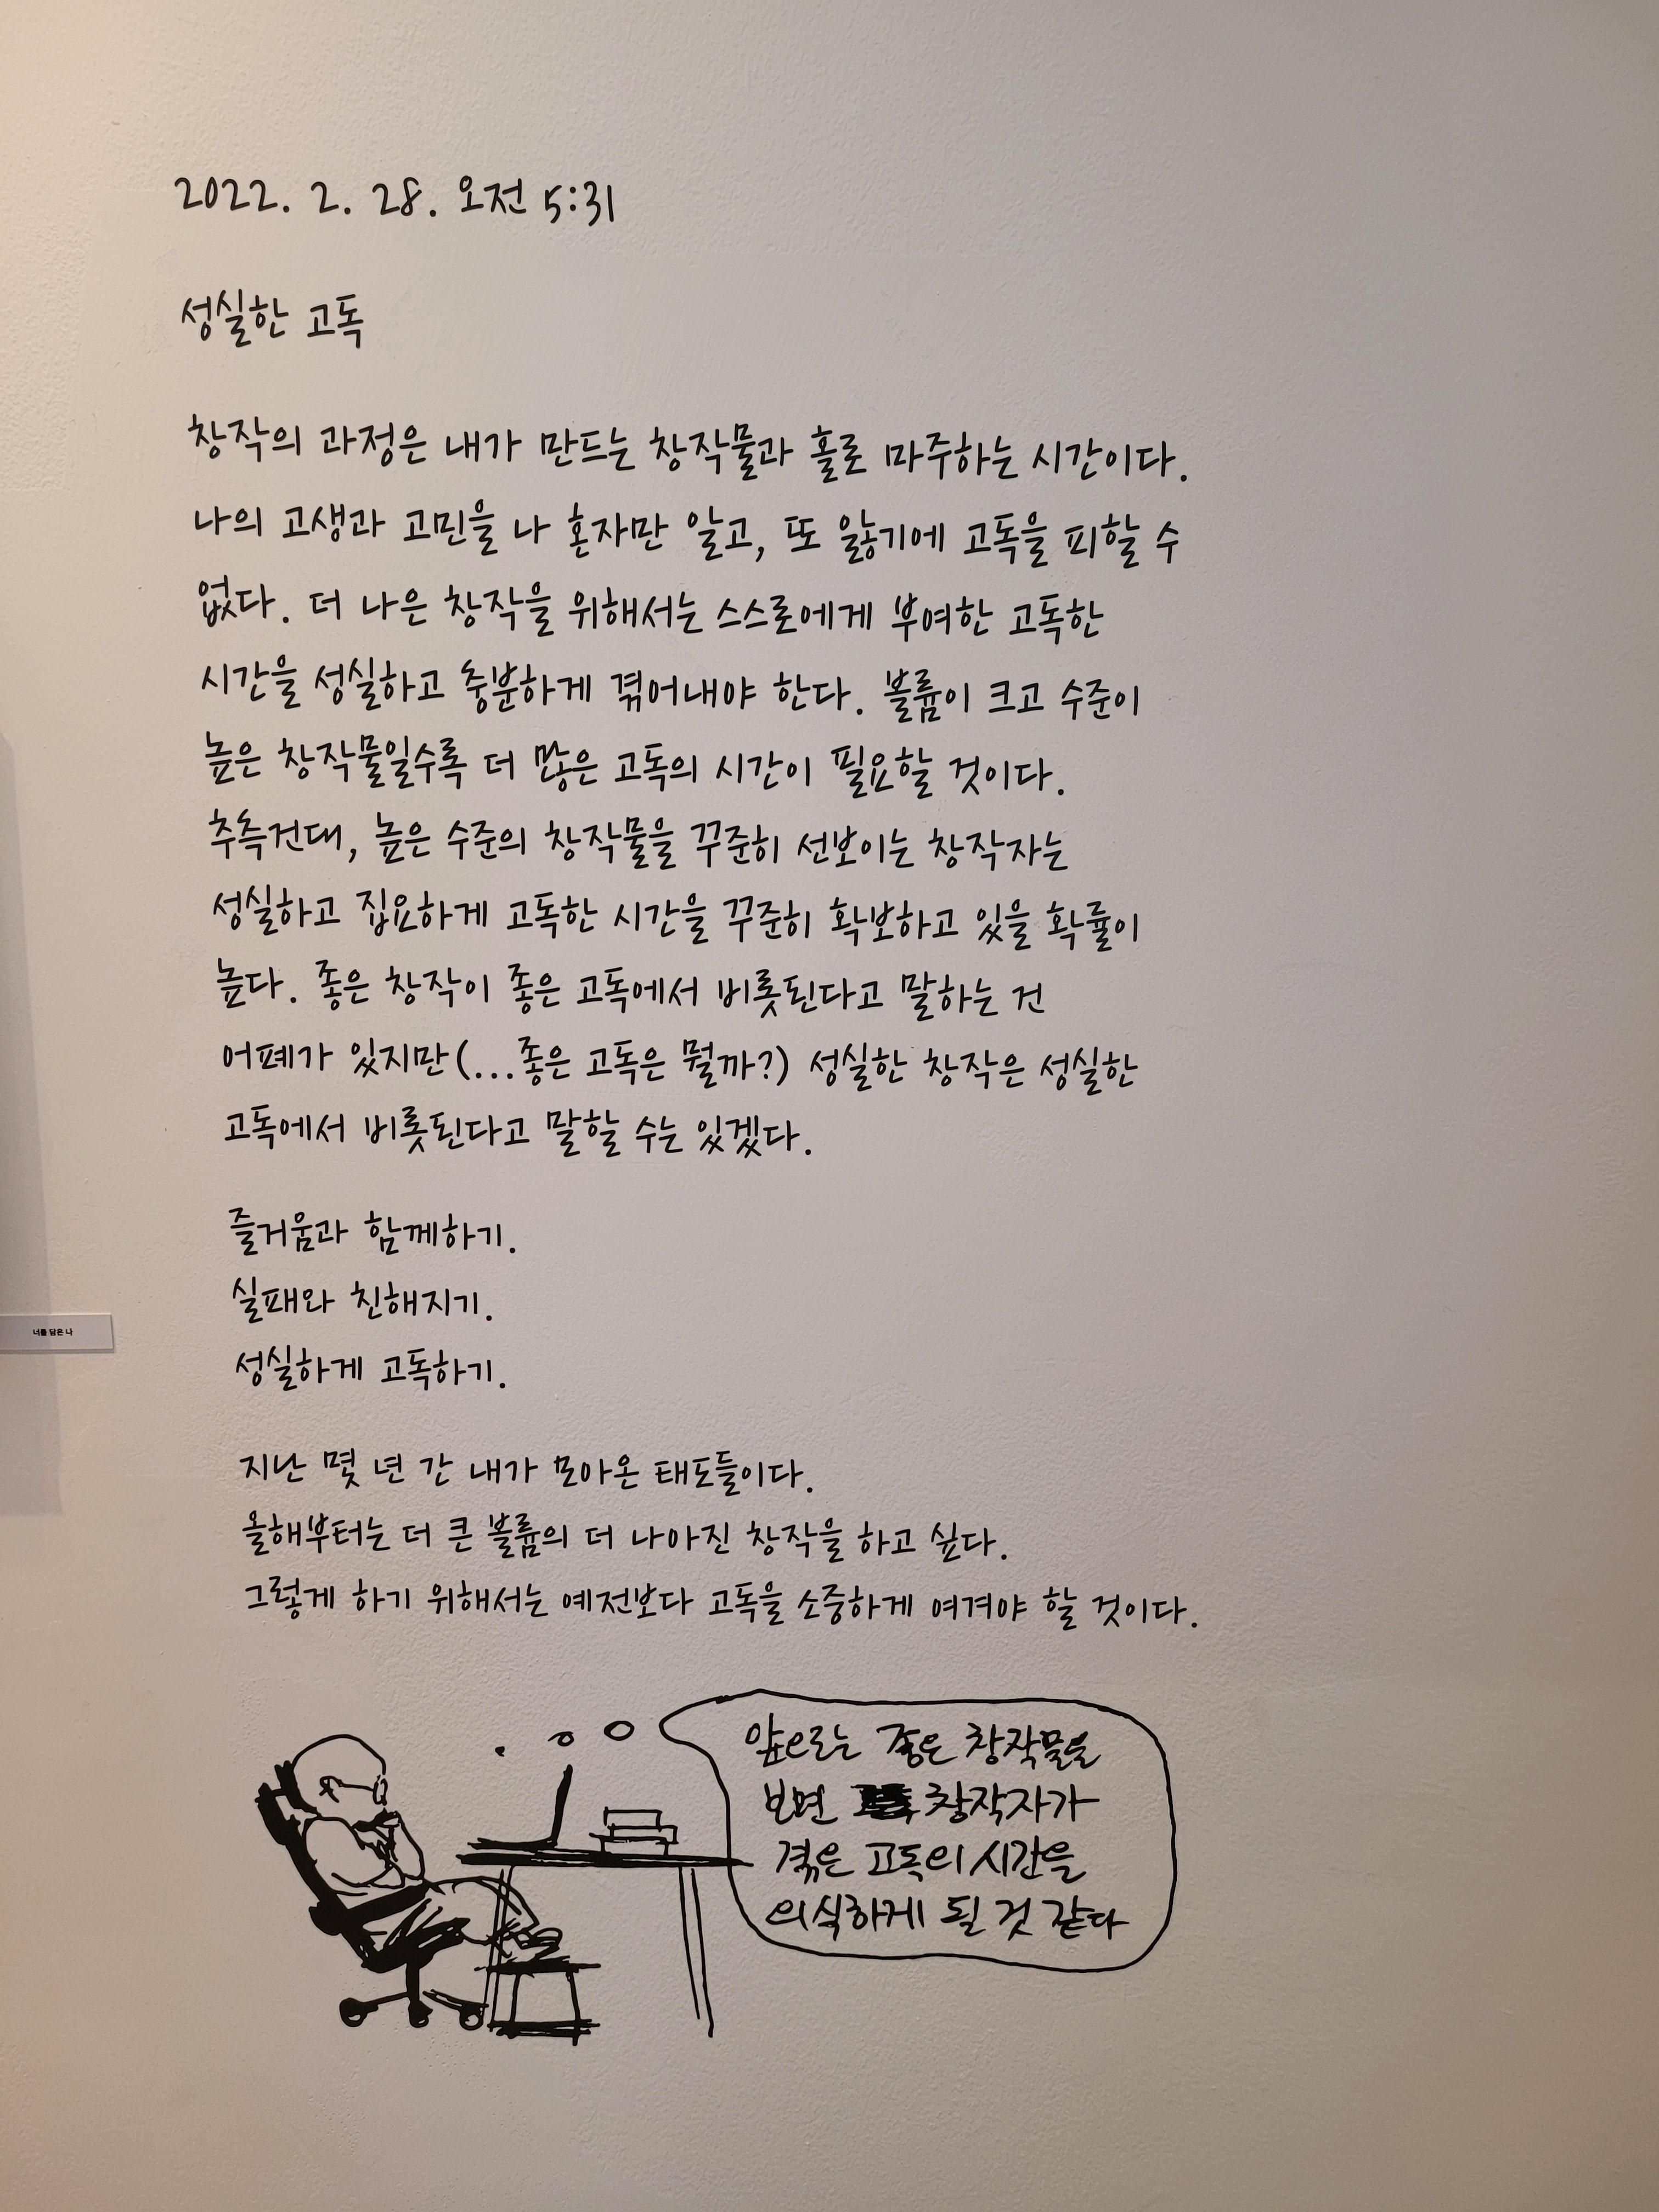 2022. 2. 28. 오전 5:31
성실한 고독
창작의 과정은 내가 만드는 창작물과 홀로 마주하는 시간이다.
나의 고생과 고민을 나 혼자만 알고, 또 앓기에 고독을 피할 수
없다. 더 나은 창작을 위해서는 스스로에게 부여한 고독한
시간을 성실하고 충분하게 겪어내야 한다. 볼륨이 크고 수준이
높은 창작물일수록 더 많은 고독의 시간이 필요할 것이다.
추측건대, 높은 수준의 창작물을 꾸준히 선보이는 창작자는
성실하고 집요하게 고독한 시간을 꾸준히 확보하고 있을 확률이
높다. 좋은 창작이 좋은 고독에서 비롯된다고 말하는 건
어폐가 있지만(...좋은 고독은 뭘까?) 성실한 창작은 성실한
고독에서 비롯된다고 말할 수는 있겠다.
즐거움과 함께하기.
실패와 친해지기.
성실하게 고독하기.
지난 몇 년 간 내가 모아온 태도들이다.
올해부터는 더 큰 볼륨의 더 나아진 창작을 하고 싶다.
그렇게 하기 위해서는 예전보다 고독을 소중하게 여겨야 할 것이다.
앞으로는 좋은 창작물을
보면 창작자가
겪은 고독의 시간을
의식하게 될 것 같다
너를 담은 나